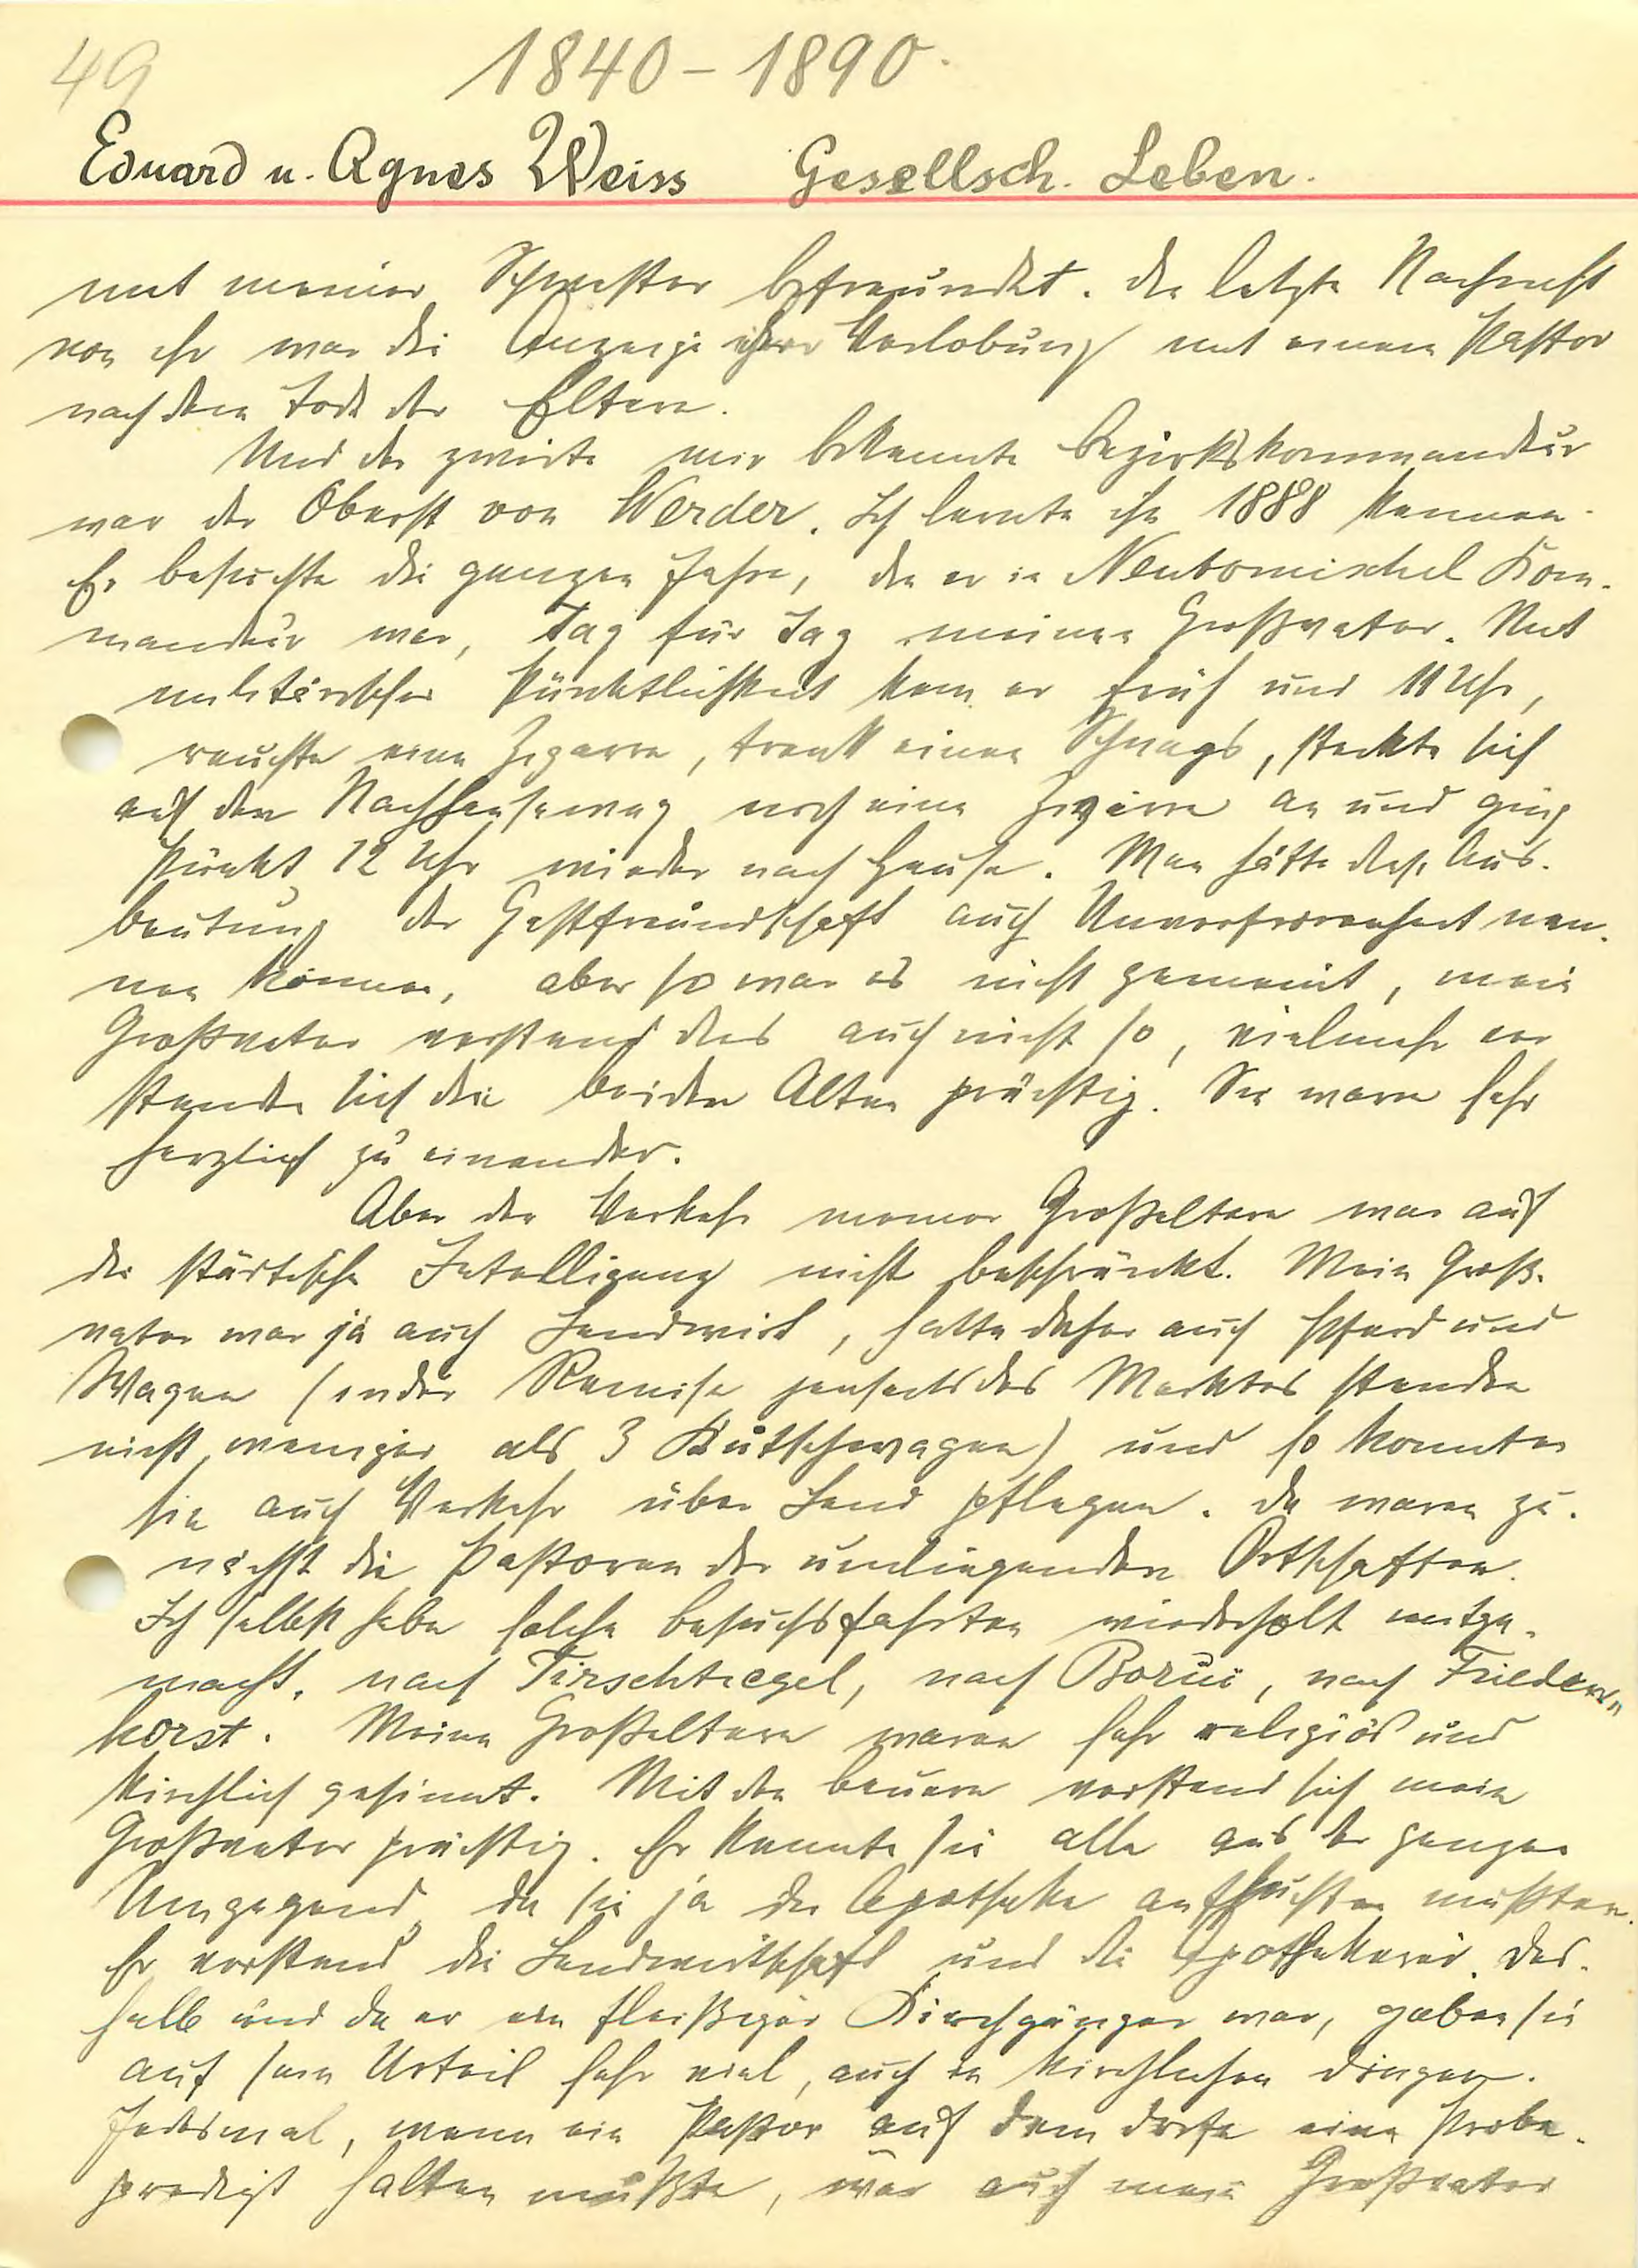 49 1840-1890.
Eduard u. Agnes Weiss Gesellsch. Leben.
mit meiner Schwester befreundet. Die letzte Nachricht
von ihr war die Anzeige ihrer Verlobung mit einem Pastor
nach dem Tode der Eltern.
Und der zweite mir bekannte Bezirkskommandeur
war der Oberst von Werder. Ich lernte ihn 1888 kennen.
Er besuchte die ganzen Jahre, die er in Neutomischel Kom-
mandeur war, Tag für Tag meinen Großvater. Mit
militärischer Pünktlichkeit kam er früh um 11 Uhr,
rauchte eine Zigarre, trank einen Schnaps, steckte sich
auf den Nachhauseweg noch eine Zigarre an und ging
Punkt 12 Uhr wieder nach Hause. Man hätte diese Aus-
beutung der Gastfreundschaft auch Unverfrorenheit nen-
nen können, aber so war es nicht gemeint, mein
Großvater verstand dies auch nicht so, vielmehr ver
standen sich die beiden Alten prächtig. Sie waren sehr
herzlich zu einander.
Aber der Verkehr meiner Großeltern war auf
die städtische Intelligenz nicht beschränkt. Mein Groß-
vater war ja auch Landwirt, hatte daher auch Pferd und
Wagen (in der Remise jenseits des Marktes standen
nicht weniger als 3 Kutschwagen) und so konnten
sie auch Verkehr über Land pflegen. Da waren zu-
nächst die Pastoren der umliegenden Ortschaften.
Ich selbst habe solche Besuchsfahrten wiederholt mitge-
macht, nach Tirschtiegel, nach Borui, nach Friedens-
horst. Meine Großeltern waren sehr religiös und
kirchlich gesinnt. Mit den Bauern verstand sich mein
Großvater prächtig. Er kannte sie alle aus der ganzen
Umgegend, da sie ja die Apotheke aufsuchen mußten.
Er verstand die Landwirtschaft und die Apothekerei. Des-
halb und da er ein fleißiger Kirchgänger war, gaben sie
auf sein Urteil sehr viel, auch in kirchlichen Dingen.
Jedesmal, wenn ein Pastor auf dem Dorfe eine Probe-
predigt halten mußte, war auch mein Großvater